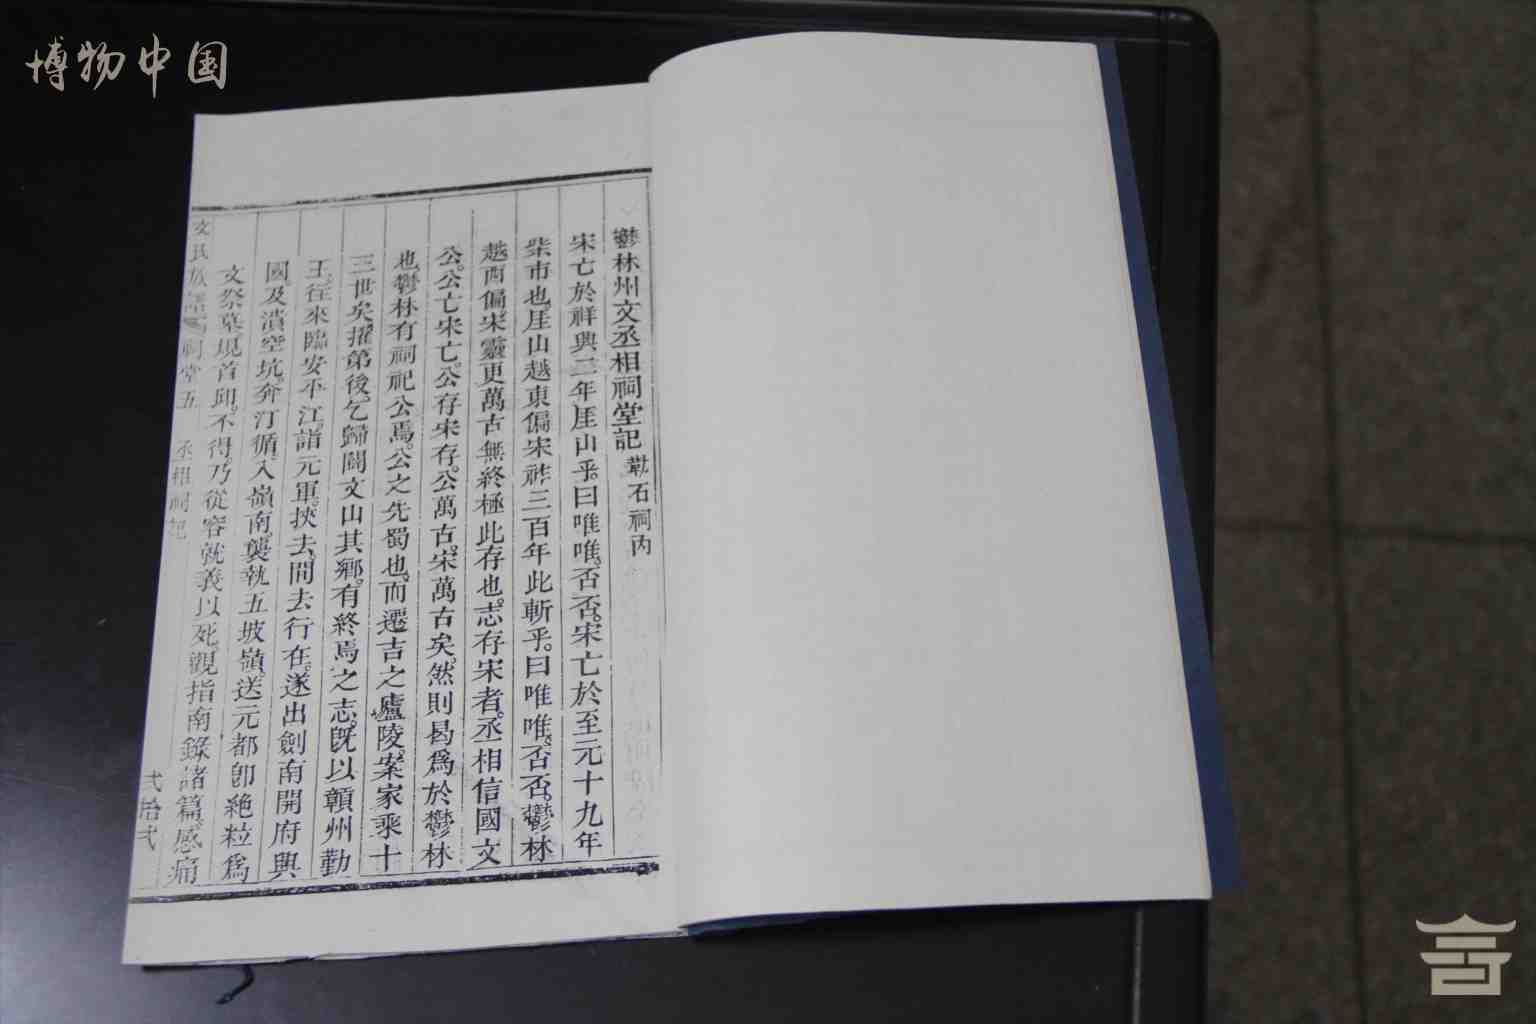 博物中国
鬱林州文丞相祠堂記 勒石祠內
宋亡於祥興二年厓山乎。曰唯唯。否否。宋亡於至元十九年
柴市也。厓山越東偏宋祚三百年此斬乎。曰唯唯。否否。鬱林
越西偏。宋靈更萬古無終極此存也。志存宋者。丞相信國文
公。公亡宋亡。公存宋存。公萬古。宋萬古矣。然則曷為於鬱林
也。鬱林有祠祀公焉。公之先蜀也。而遷吉之廬陵。案家乘十
三世矣。擢第後。乞歸闢文山其鄉。有終焉之志。旣以贛州勤
王。往來臨安平江。詣元軍。挾去。間去行在。遂出劍南開府興
國。及潰空坑。奔汀循。入嶺南。襲執五坡嶺。送元都。卽絶粒為
文祭墓。覬首邱。不得。乃從容就義以死。觀指南錄諸篇。感痛
文氏族譜 祠堂五 丞相祠記 弍拾弍